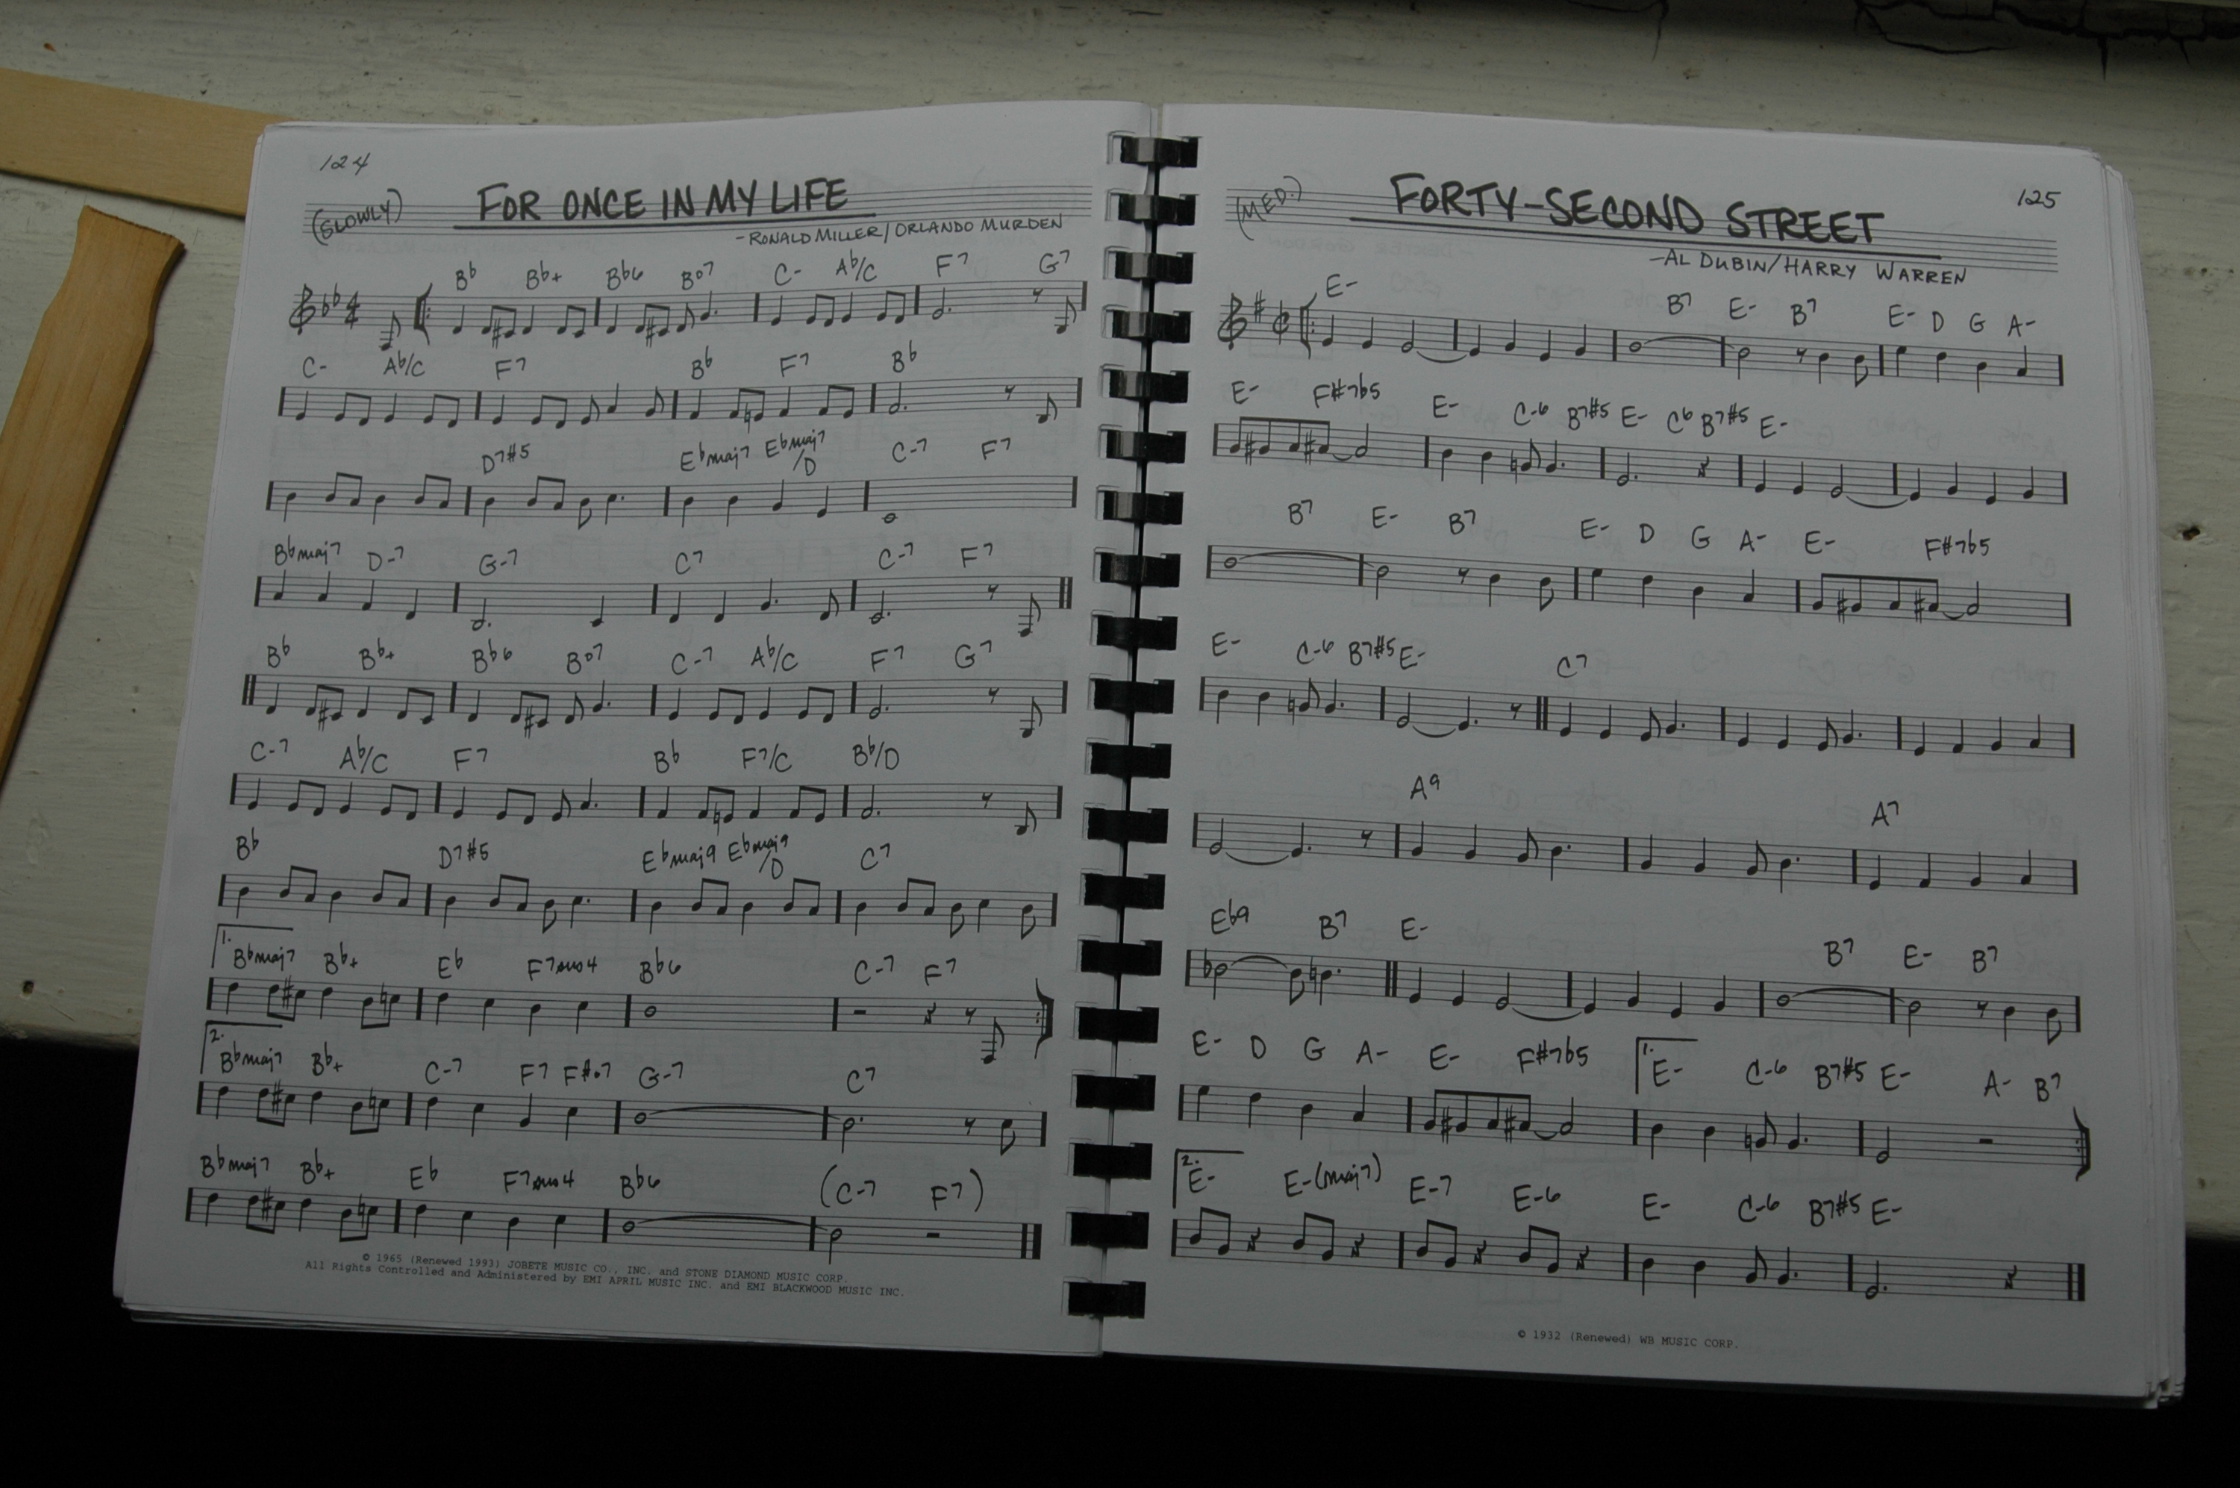 124
(SLOWLY) FOR ONCE IN MY LIFE
-RONALD MILLER/ORLANDO MURDEN
B♭ B♭+ B♭6 B°7 C- A♭/C F7 G7
C- A♭/C F7 B♭ F7 B♭
D7#5 E♭maj7 E♭maj7/D C-7 F7
B♭maj7 D-7 G-7 C7 C-7 F7
B♭ B♭+ B♭6 B°7 C-7 A♭/C F7 G7
C-7 A♭/C F7 B♭ F7/C B♭/D
B♭ D7#5 E♭maj9 E♭maj9/D C7
1. B♭maj7 B♭+ E♭ F7sus4 B♭6 C-7 F7
2. B♭maj7 B♭+ C-7 F7 F#°7 G-7 C7
B♭maj7 B♭+ E♭ F7sus4 B♭6 (C-7 F7)
© 1965 (Renewed 1993) JOBETE MUSIC CO., INC. and STONE DIAMOND MUSIC CORP.
All Rights Controlled and Administered by EMI APRIL MUSIC INC. and EMI BLACKWOOD MUSIC INC.
125
(MED.) FORTY-SECOND STREET
-AL DUBIN/HARRY WARREN
E- B7 E- B7 E- D G A-
E- F#7b5 E- C-6 B7#5 E- C6 B7#5 E-
B7 E- B7 E- D G A- E- F#7b5
E- C-6 B7#5 E- C7
A9 A7
E♭9 B7 E- B7 E- B7
E- D G A- E- F#7b5 1. E- C-6 B7#5 E- A- B7
2. E- E-(maj7) E-7 E-6 E- C-6 B7#5 E-
© 1932 (Renewed) WB MUSIC CORP.